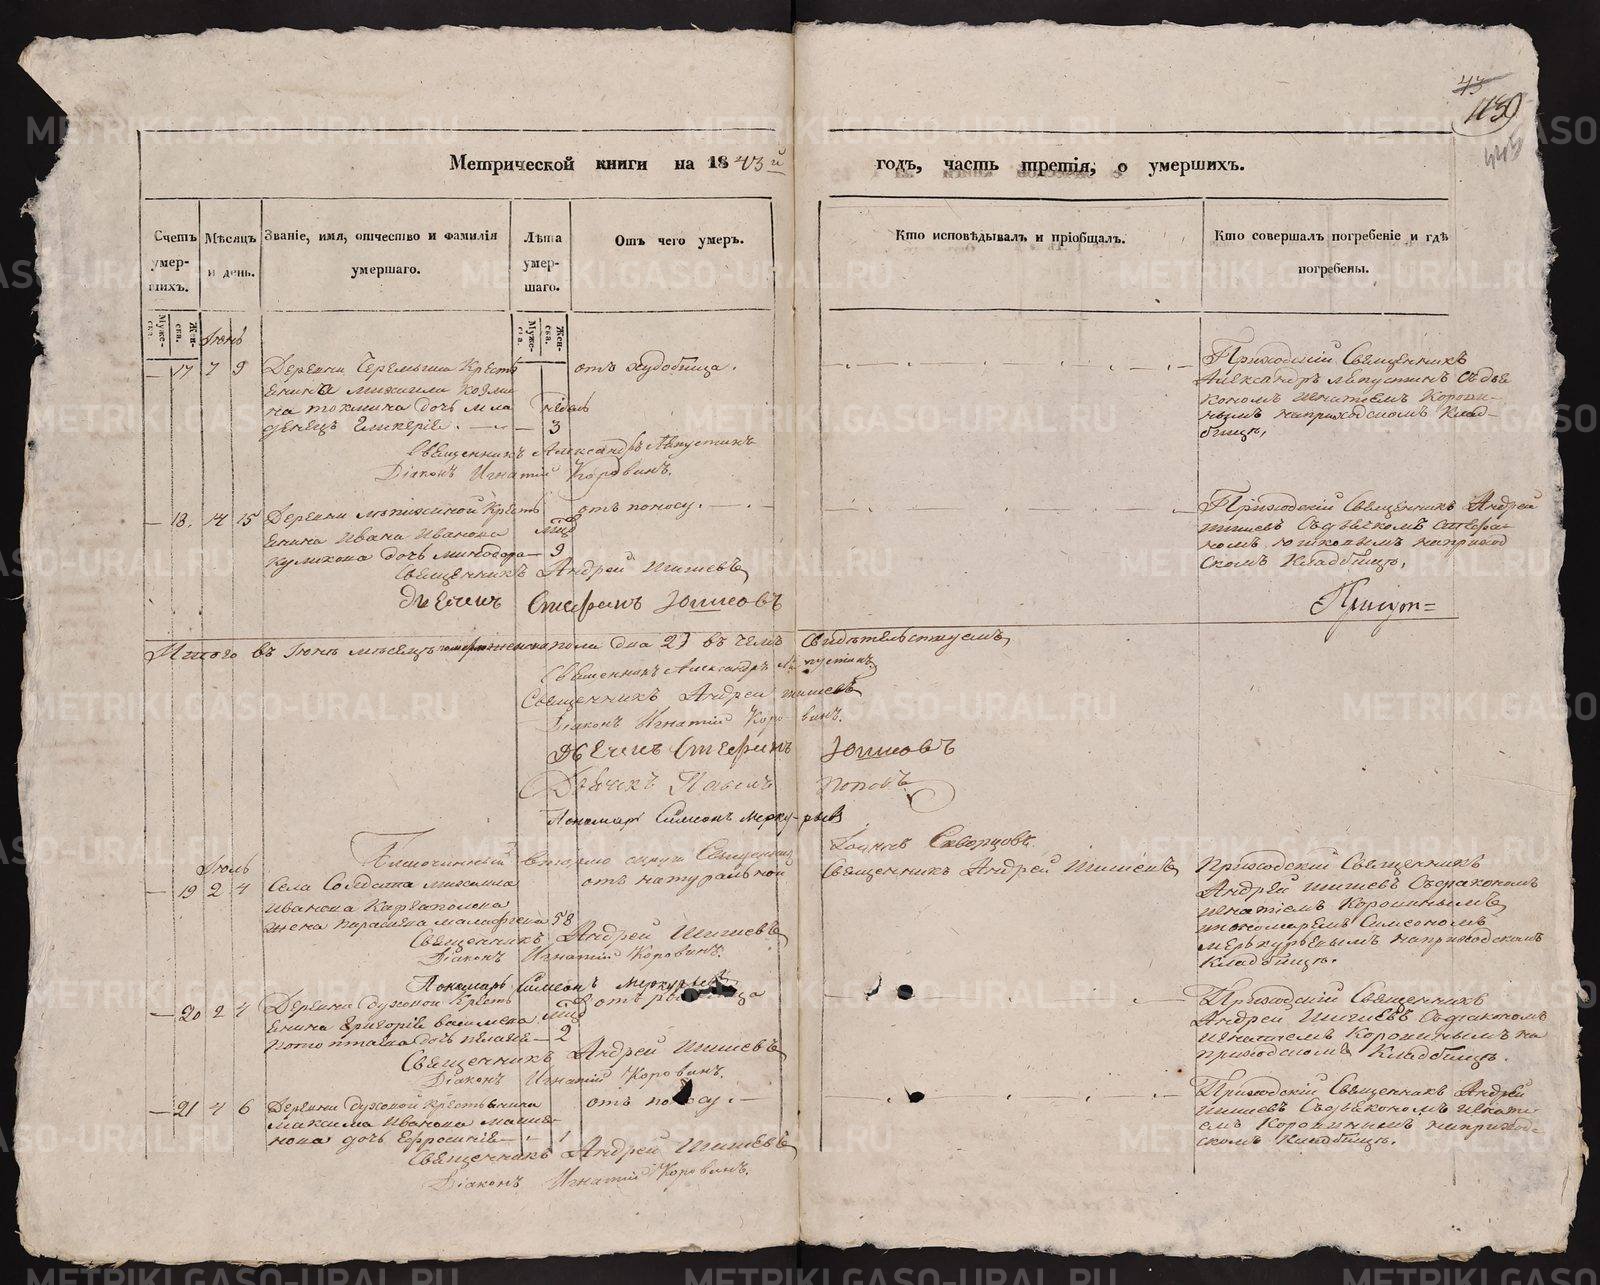 43
113
Метрической книги на 1843й годъ, часть третія, о умершихъ.
Счетъ умер-шихъ.
Мѣсяцъ и день.
Званіе, имя, отчество и фамилія умершаго.
Лѣта умер-шаго.
Отъ чего умеръ.
Кто исповѣдывалъ и пріобщалъ.
Кто совершалъ погребеніе и гдѣ погребены.
Муже-ска
Жен-ска.
Муже-ска.
Жен-ска.
Іюнь
17 7 9 Деревни Черемыша Кресть
янина Михаила Козми
на Токмина дочь мла
денецъ Гликерія.
недель
3
отъ худобища.
Приходскій Священникъ
Александръ Лепустинъ съ діа
кономъ Игнатіемъ Корови-
нымъ на приходскомъ клад-
бищѣ,
Священникъ Александръ
Діаконъ Игнатій Коровинъ.
18. 14 15 Деревни Кресть
янина Ивана Иванова
Куликова дочь Минодора
мцъ
9
отъ поносу.
Приходскій Священникъ Андрей
Шишевъ съ дьячкомъ Стефа-
номъ на приход
скомъ кладбищѣ,
Священникъ Андрей Шишевъ
Дьячекъ Стефанъ
Итого въ Іюнѣ мѣсяцѣ женска пола два 2) въ чемъ свидѣтельствуемъ,
Священникъ Александръ
Священникъ Андрей Шишевъ
Діаконъ Игнатій Коровинъ.
Дьячекъ Стефанъ
Дьячекъ Павелъ Поповъ
Пономарь Симеонъ Меркурьевъ
Благочинный Священникъ Іоаннъ Скворцовъ.
Іюль
19 2 4 Села Солдата Михаила
Иванова Каргаполова
жена Параскева Малафеева 58
отъ натуральной
Священникъ Андрей Шишевъ
Приходскій Священникъ
Андрей Шишевъ съ діакономъ
Игнатіемъ Коровинымъ
пономаремъ Симеономъ
Меркурьевымъ на приходскомъ
кладбищѣ.
Священникъ Андрей Шишевъ
Діаконъ Игнатій Коровинъ.
Пономарь Симеонъ Меркурьевъ
20 2 4 Деревни Духовой Кресть
янина Григорія Василева
дочь Пелагея
мцъ
2
отъ
Приходскій Священникъ
Андрей Шишевъ съ діакономъ
Игнатіемъ Коровинымъ на
приходскомъ кладбищѣ.
Священникъ Андрей Шишевъ
Діаконъ Игнатій Коровинъ.
21 4 6 Деревни Духовой Крестьянина
Максима Иванова
дочь Ефросинія 1
отъ поносу.
Приходскій Священникъ Андрей
Шишевъ съ діякономъ Игнаті-
емъ Коровинымъ на приход-
скомъ кладбищѣ.
Священникъ Андрей Шишевъ
Діаконъ Игнатій Коровинъ.
METRIKI.GASO-URAL.RU